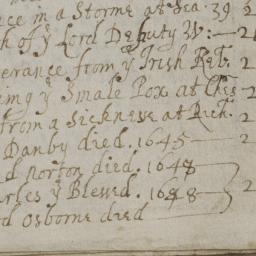 nce in a Storme at Sea. 39 2
th of y Lord Deputy W: — 2
erance from y Irish Reb. 2
ing y Smale Pox at Ches 2
from a Sickness at Rich. 2
Danby died. 1645 — 2
d Norton died. 1648
arles y Blessed. 1648 2
d Osborne died